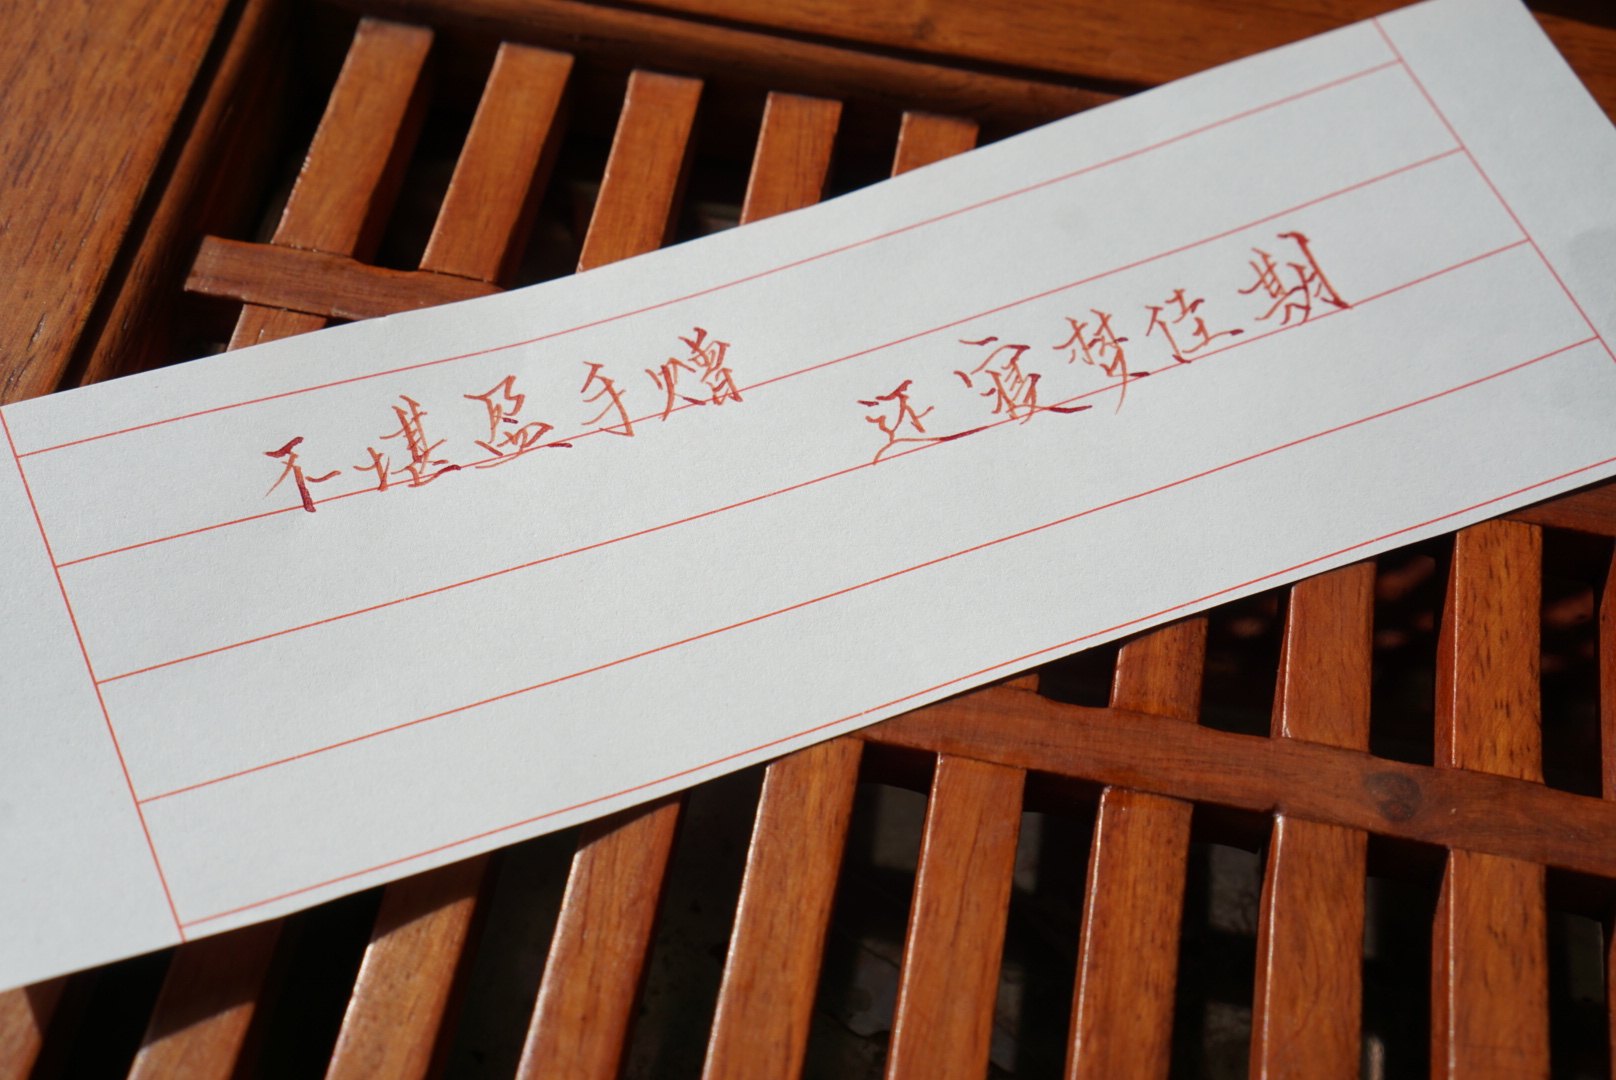 不堪盈手赠 还寝梦佳期